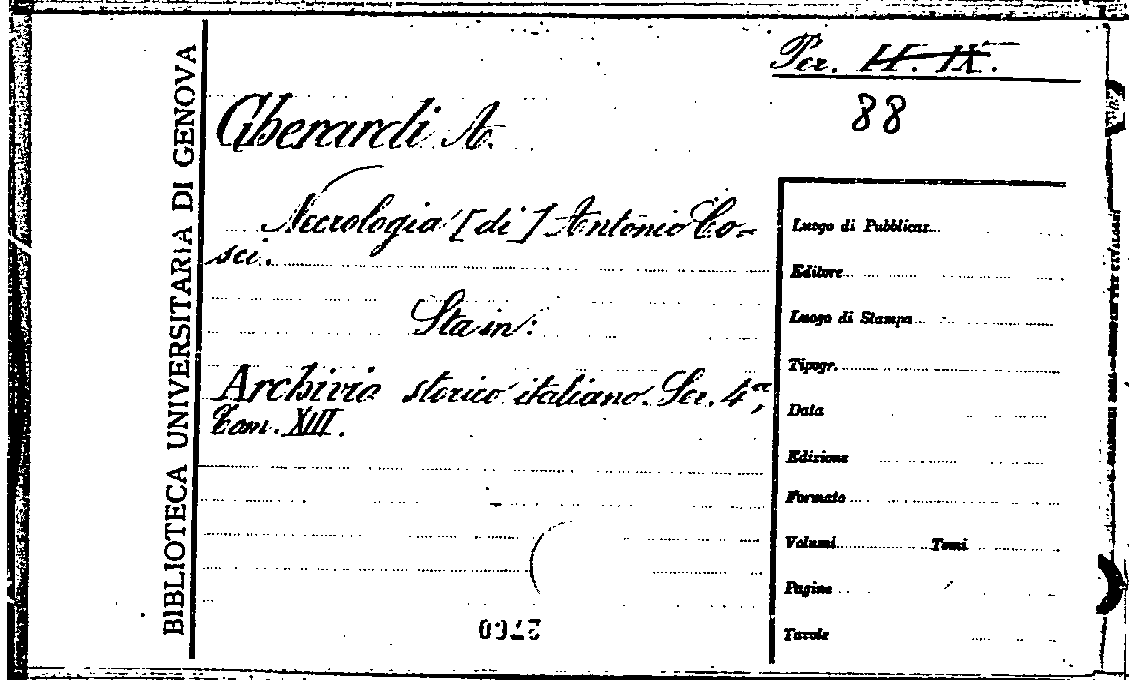 BIBLIOTECA UNIVERSITARIA DI GENOVA
Per. II. IX.
88
Gherardi A.
Necrologia [di] Antonio Co-
sci.
Sta in:
Archivio storico italiano. Ser. 4ª,
Tom. XIII.
Luogo di Pubblicaz.
Editore
Luogo di Stampa
Tipogr.
Data
Edizione
Formato
Volumi Tomi
Pagine
Tavole